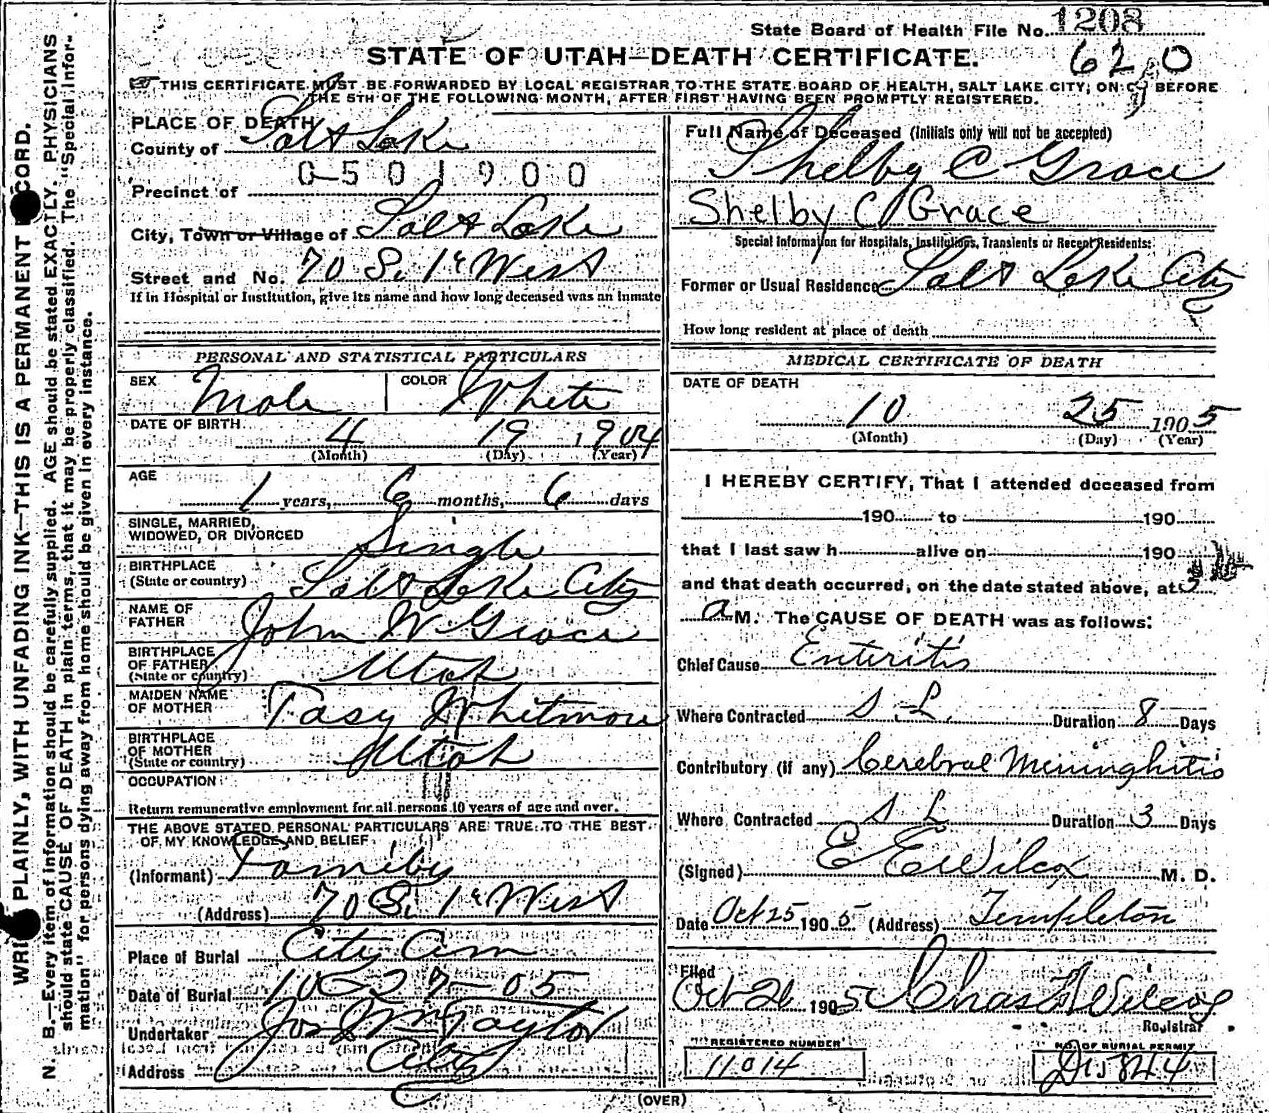 State Board of Health File No. 1208
620
STATE OF UTAH—DEATH CERTIFICATE.
THIS CERTIFICATE MUST BE FORWARDED BY LOCAL REGISTRAR TO THE STATE BOARD OF HEALTH, SALT LAKE CITY, ON OR BEFORE
THE 5TH OF THE FOLLOWING MONTH, AFTER FIRST HAVING BEEN PROMPTLY REGISTERED.
PLACE OF DEATH
County of Salt Lake
0501900
Precinct of
City, Town or Village of Salt Lake
Street and No. 70 S. 1st West
If in Hospital or Institution, give its name and how long deceased was an inmate
PERSONAL AND STATISTICAL PARTICULARS
SEX Male COLOR White
DATE OF BIRTH
4 19 1904
(Month) (Day) (Year)
AGE
1 years, 6 months, 6 days
SINGLE, MARRIED,
WIDOWED, OR DIVORCED Single
BIRTHPLACE
(State or country) Salt Lake City
NAME OF
FATHER John W Grace
BIRTHPLACE
OF FATHER
(State or country) Utah
MAIDEN NAME
OF MOTHER Tasy Whitmore
BIRTHPLACE
OF MOTHER
(State or country) Utah
OCCUPATION
Return remunerative employment for all persons 10 years of age and over.
THE ABOVE STATED PERSONAL PARTICULARS ARE TRUE TO THE BEST
OF MY KNOWLEDGE AND BELIEF
(Informant) Family
(Address) 70 S. 1st West
Place of Burial City Cem
Date of Burial 10-27-05
Undertaker Jos Wm Taylor
Address City
Full Name of Deceased (Initials only will not be accepted)
Shelby C Grace
Shelby C Grace
Special Information for Hospitals, Institutions, Transients or Recent Residents:
Former or Usual Residence Salt Lake City
How long resident at place of death
MEDICAL CERTIFICATE OF DEATH
DATE OF DEATH
10 25 1905
(Month) (Day) (Year)
I HEREBY CERTIFY, That I attended deceased from
190 to 190
that I last saw h alive on 190
and that death occurred, on the date stated above, at 3
a M. The CAUSE OF DEATH was as follows:
Chief Cause Enteritis
Where Contracted S.L. Duration 8 Days
Contributory (if any) Cerebral Meninghitis
Where Contracted S L Duration 3 Days
(Signed) E E Wilcox M. D.
Date Oct 25 1905 (Address) Templeton
Filed
Oct 26 1905 Chas F Wilcox
Registrar
REGISTERED NUMBER
11014
NO. OF BURIAL PERMIT
D15844
(OVER)
WRITE PLAINLY, WITH UNFADING INK—THIS IS A PERMANENT RECORD.
N. B.—Every item of information should be carefully supplied. AGE should be stated EXACTLY. PHYSICIANS
should state CAUSE OF DEATH in plain terms, that it may be properly classified. The "Special Infor-
mation" for persons dying away from home should be given in every instance.